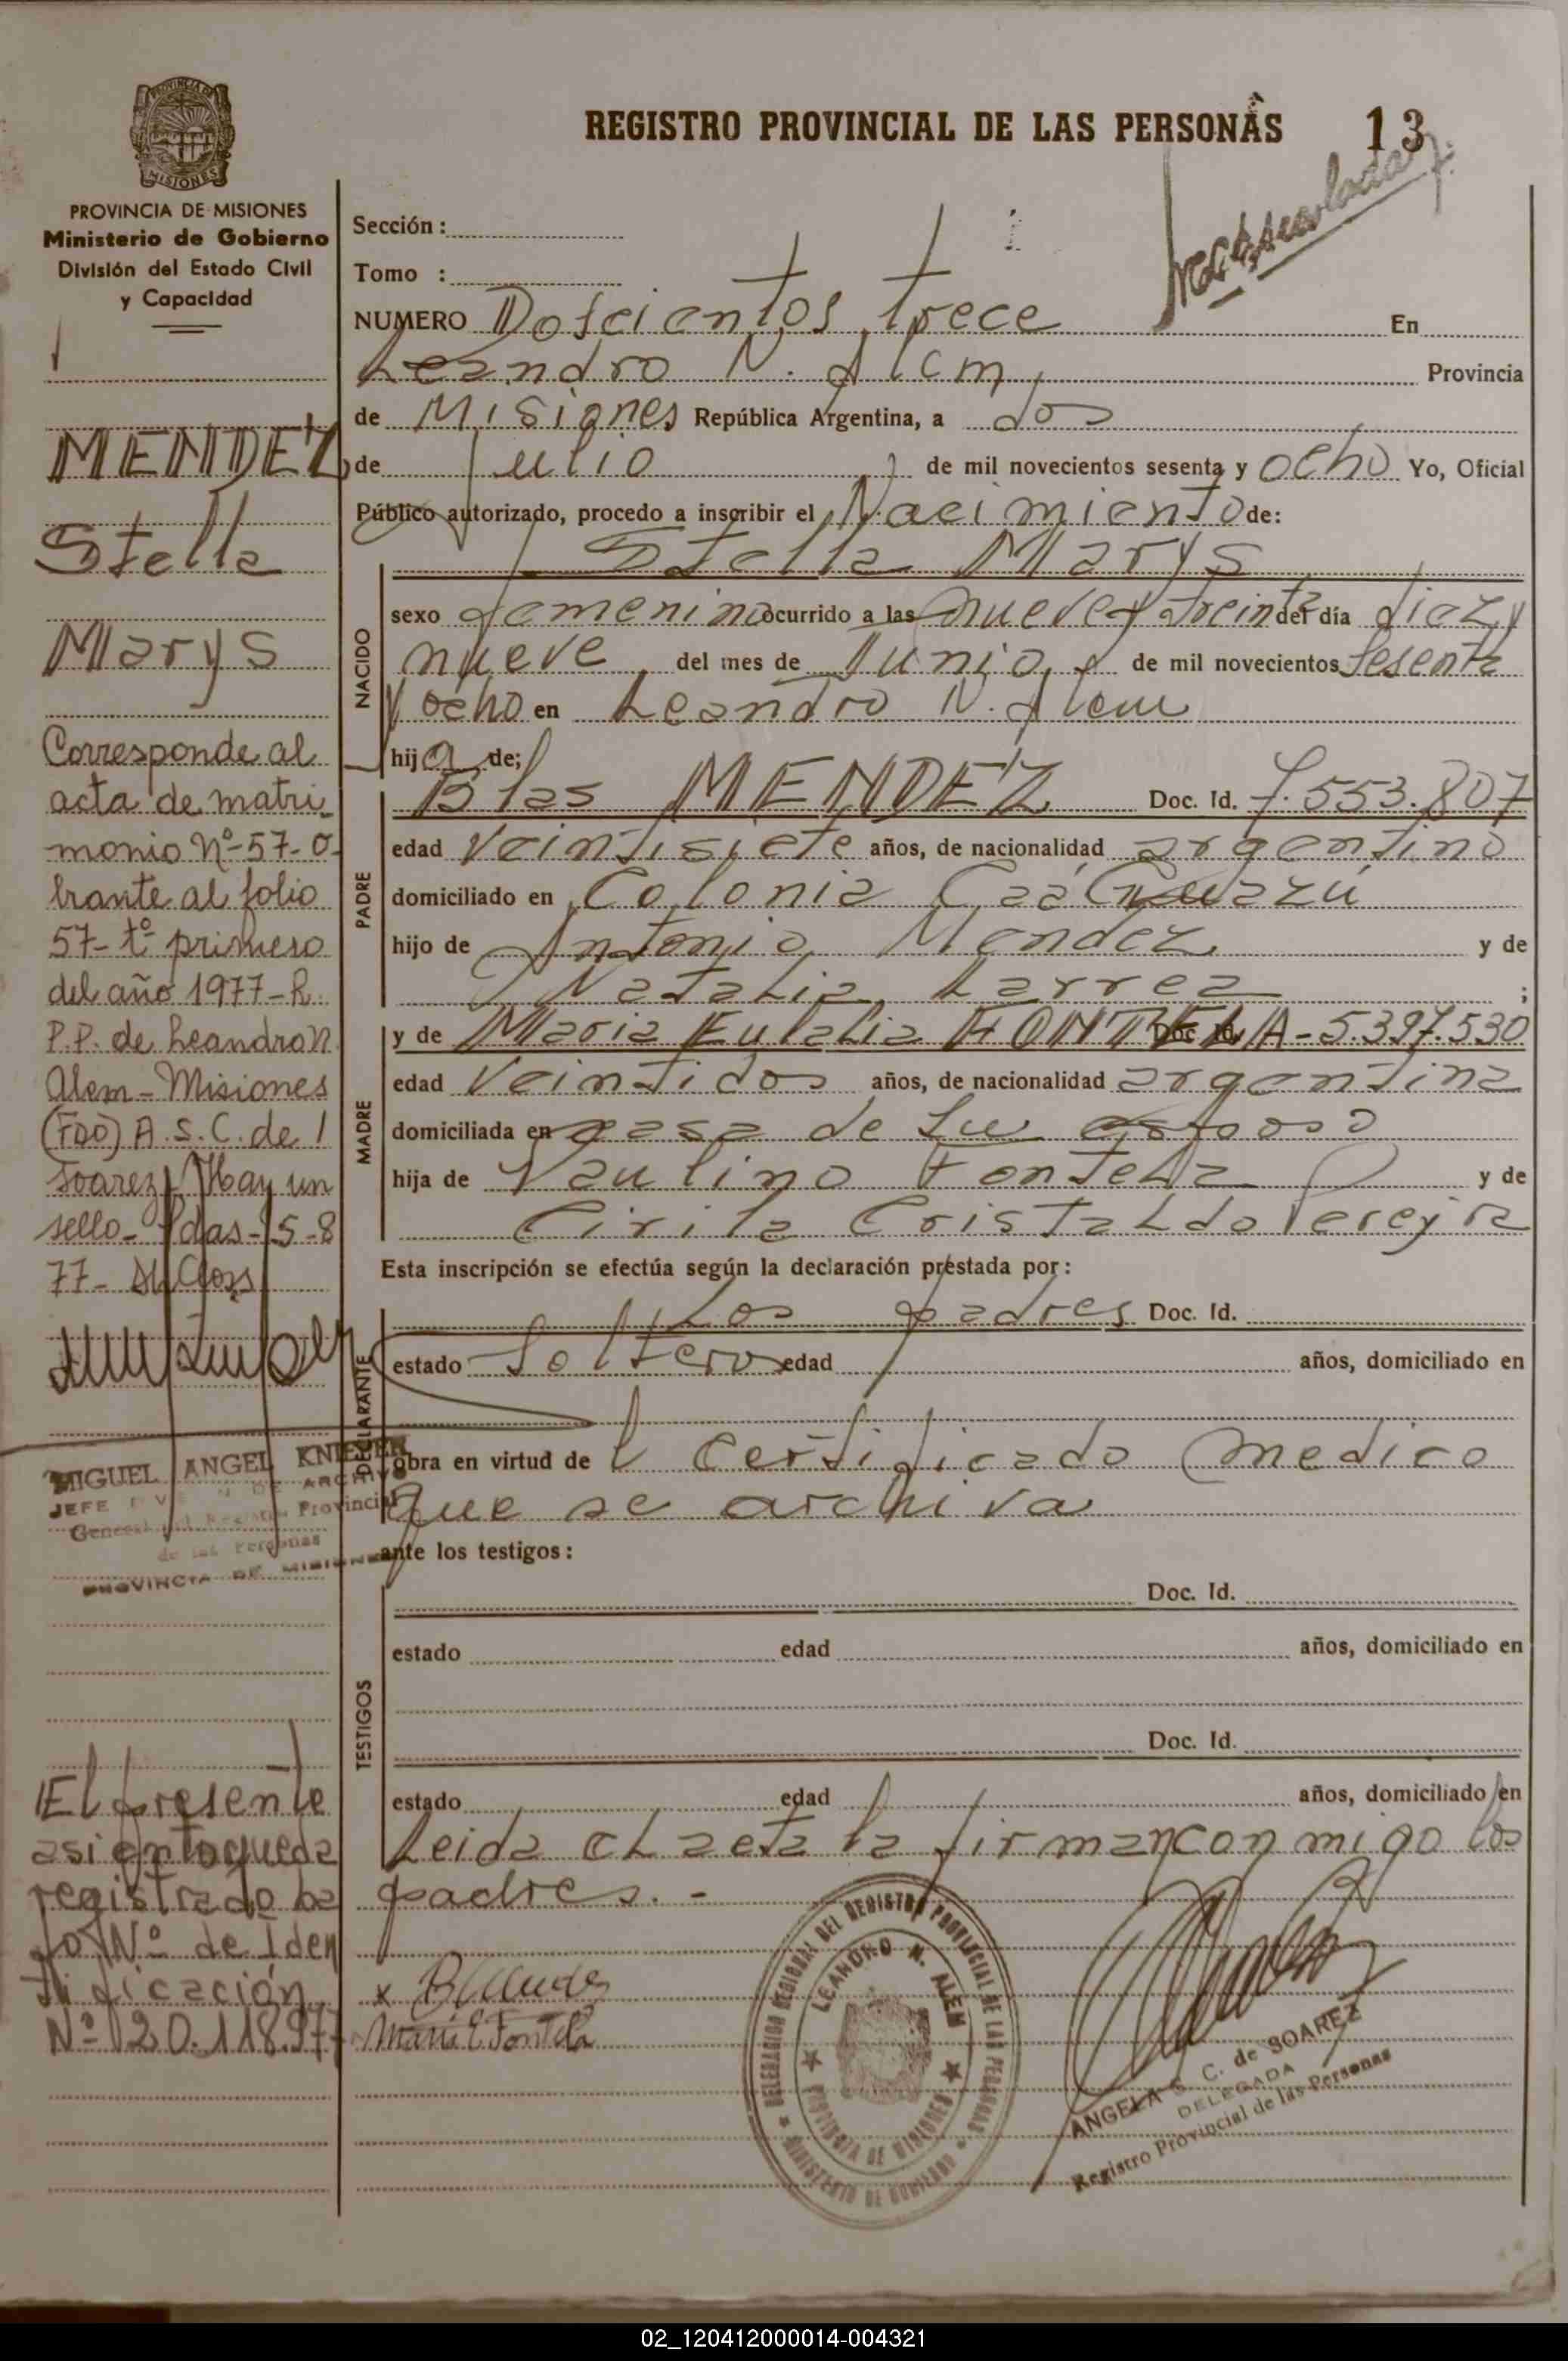 REGISTRO PROVINCIAL DE LAS PERSONAS 13
MISIONES
PROVINCIA DE MISIONES
Ministerio de Gobierno
División del Estado Civil
y Capacidad
MENDEZ
Stella
Marys
Corresponde al
acta de matri-
monio Nº-57-O-
brante al folio
57-tº primero
del año 1977-R.
P.P. de Leandro N.
Alem-Misiones
(FDO) A.S.C. de
Soarez Hay un
sello- Pdas-15-8
77-
MIGUEL ANGEL KNIEPER
JEFE DE ARCHIVO
General del Registro Provincial
de las Personas
PROVINCIA DE MISIONES
El presente
asiento queda
registrado ba
jo Nº de Iden
tificación
Nº 20.118.977
Sección:
Tomo :
NUMERO Doscientos trece En
Leandro N. Alem, Provincia
de Misiones República Argentina, a dos
de Julio de mil novecientos sesenta y ocho Yo, Oficial
Público autorizado, procedo a inscribir el Nacimiento de:
Stella Marys
NACIDO
sexo femenino ocurrido a las nueve y treinta del día diez y
nueve del mes de Junio de mil novecientos sesenta
y ocho en Leandro N. Alem
hija de;
PADRE
Blas MENDEZ Doc. Id. 7.553.807
edad veintisiete años, de nacionalidad argentino
domiciliado en Colonia Caá Guazú
hijo de Antonio Mendez y de
Natalia Larrea ;
MADRE
y de Maria Eulalia FONTELA Doc. Id. 5.397.530
edad veintidos años, de nacionalidad argentina
domiciliada en casa de su esposo
hija de Paulino Fontela y de
Cirila Cristaldo Pereyra
Esta inscripción se efectúa según la declaración prestada por:
DECLARANTE
Los padres Doc. Id.
estado Solteros edad años, domiciliado en
obra en virtud de l certificado medico
que se archiva
ante los testigos:
TESTIGOS
Doc. Id.
estado edad años, domiciliado en
Doc. Id.
estado edad años, domiciliado en
Leida el acta la firman conmigo los
padres.-
x BMendez
Maria E Fontela
DELEGACION REGIONAL DEL REGISTRO PROVINCIAL DE LAS PERSONAS
LEANDRO N. ALEM
PROVINCIA DE MISIONES
MINISTERIO DE GOBIERNO
ANGELA S. C. de SOAREZ
DELEGADA
Registro Provincial de las Personas
02_120412000014-004321